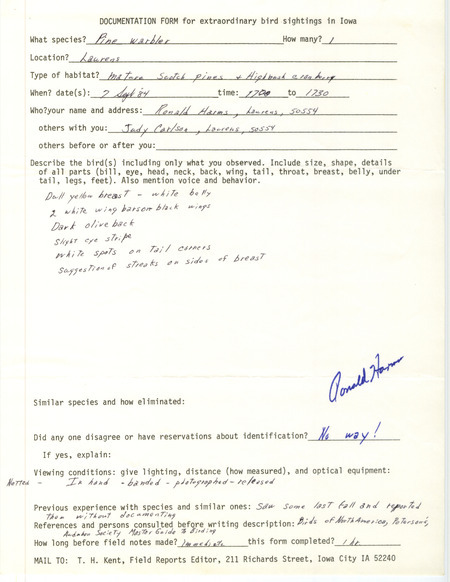 DOCUMENTATION FORM for extraordinary bird sightings in Iowa
What species? Pine Warbler How many? 1
Location? Laurens
Type of habitat? mature Scotch pines + Highbush cranberry
When? date(s): 7 Sept 84 time: 1700 to 1730
Who?your name and address: Ronald Harms, Laurens, 50554
others with you: Judy Carlson, Laurens, 50554
others before or after you:
Describe the bird(s) including only what you observed. Include size, shape, details
of all parts (bill, eye, head, neck, back, wing, tail, throat, breast, belly, under
tail, legs, feet). Also mention voice and behavior.
Dull yellow breast - white belly
2 white wing bars on black wings
Dark olive back
Slight eye stripe
White spots on Tail corners
Suggestion of streaks on sides of breast
Ronald Harms
Similar species and how eliminated:
Did any one disagree or have reservations about identification? No way!
If yes, explain:
Viewing conditions: give lighting, distance (how measured), and optical equipment:
Netted - In hand - banded - photographed - released
Previous experience with species and similar ones: Saw some last fall and reported
them without documenting
References and persons consulted before writing description: Birds of North America, Peterson's,
Audubon Society Master Guide to Birding
How long before field notes made? immediate this form completed? 1 hr
MAIL TO: T. H. Kent, Field Reports Editor, 211 Richards Street, Iowa City IA 52240